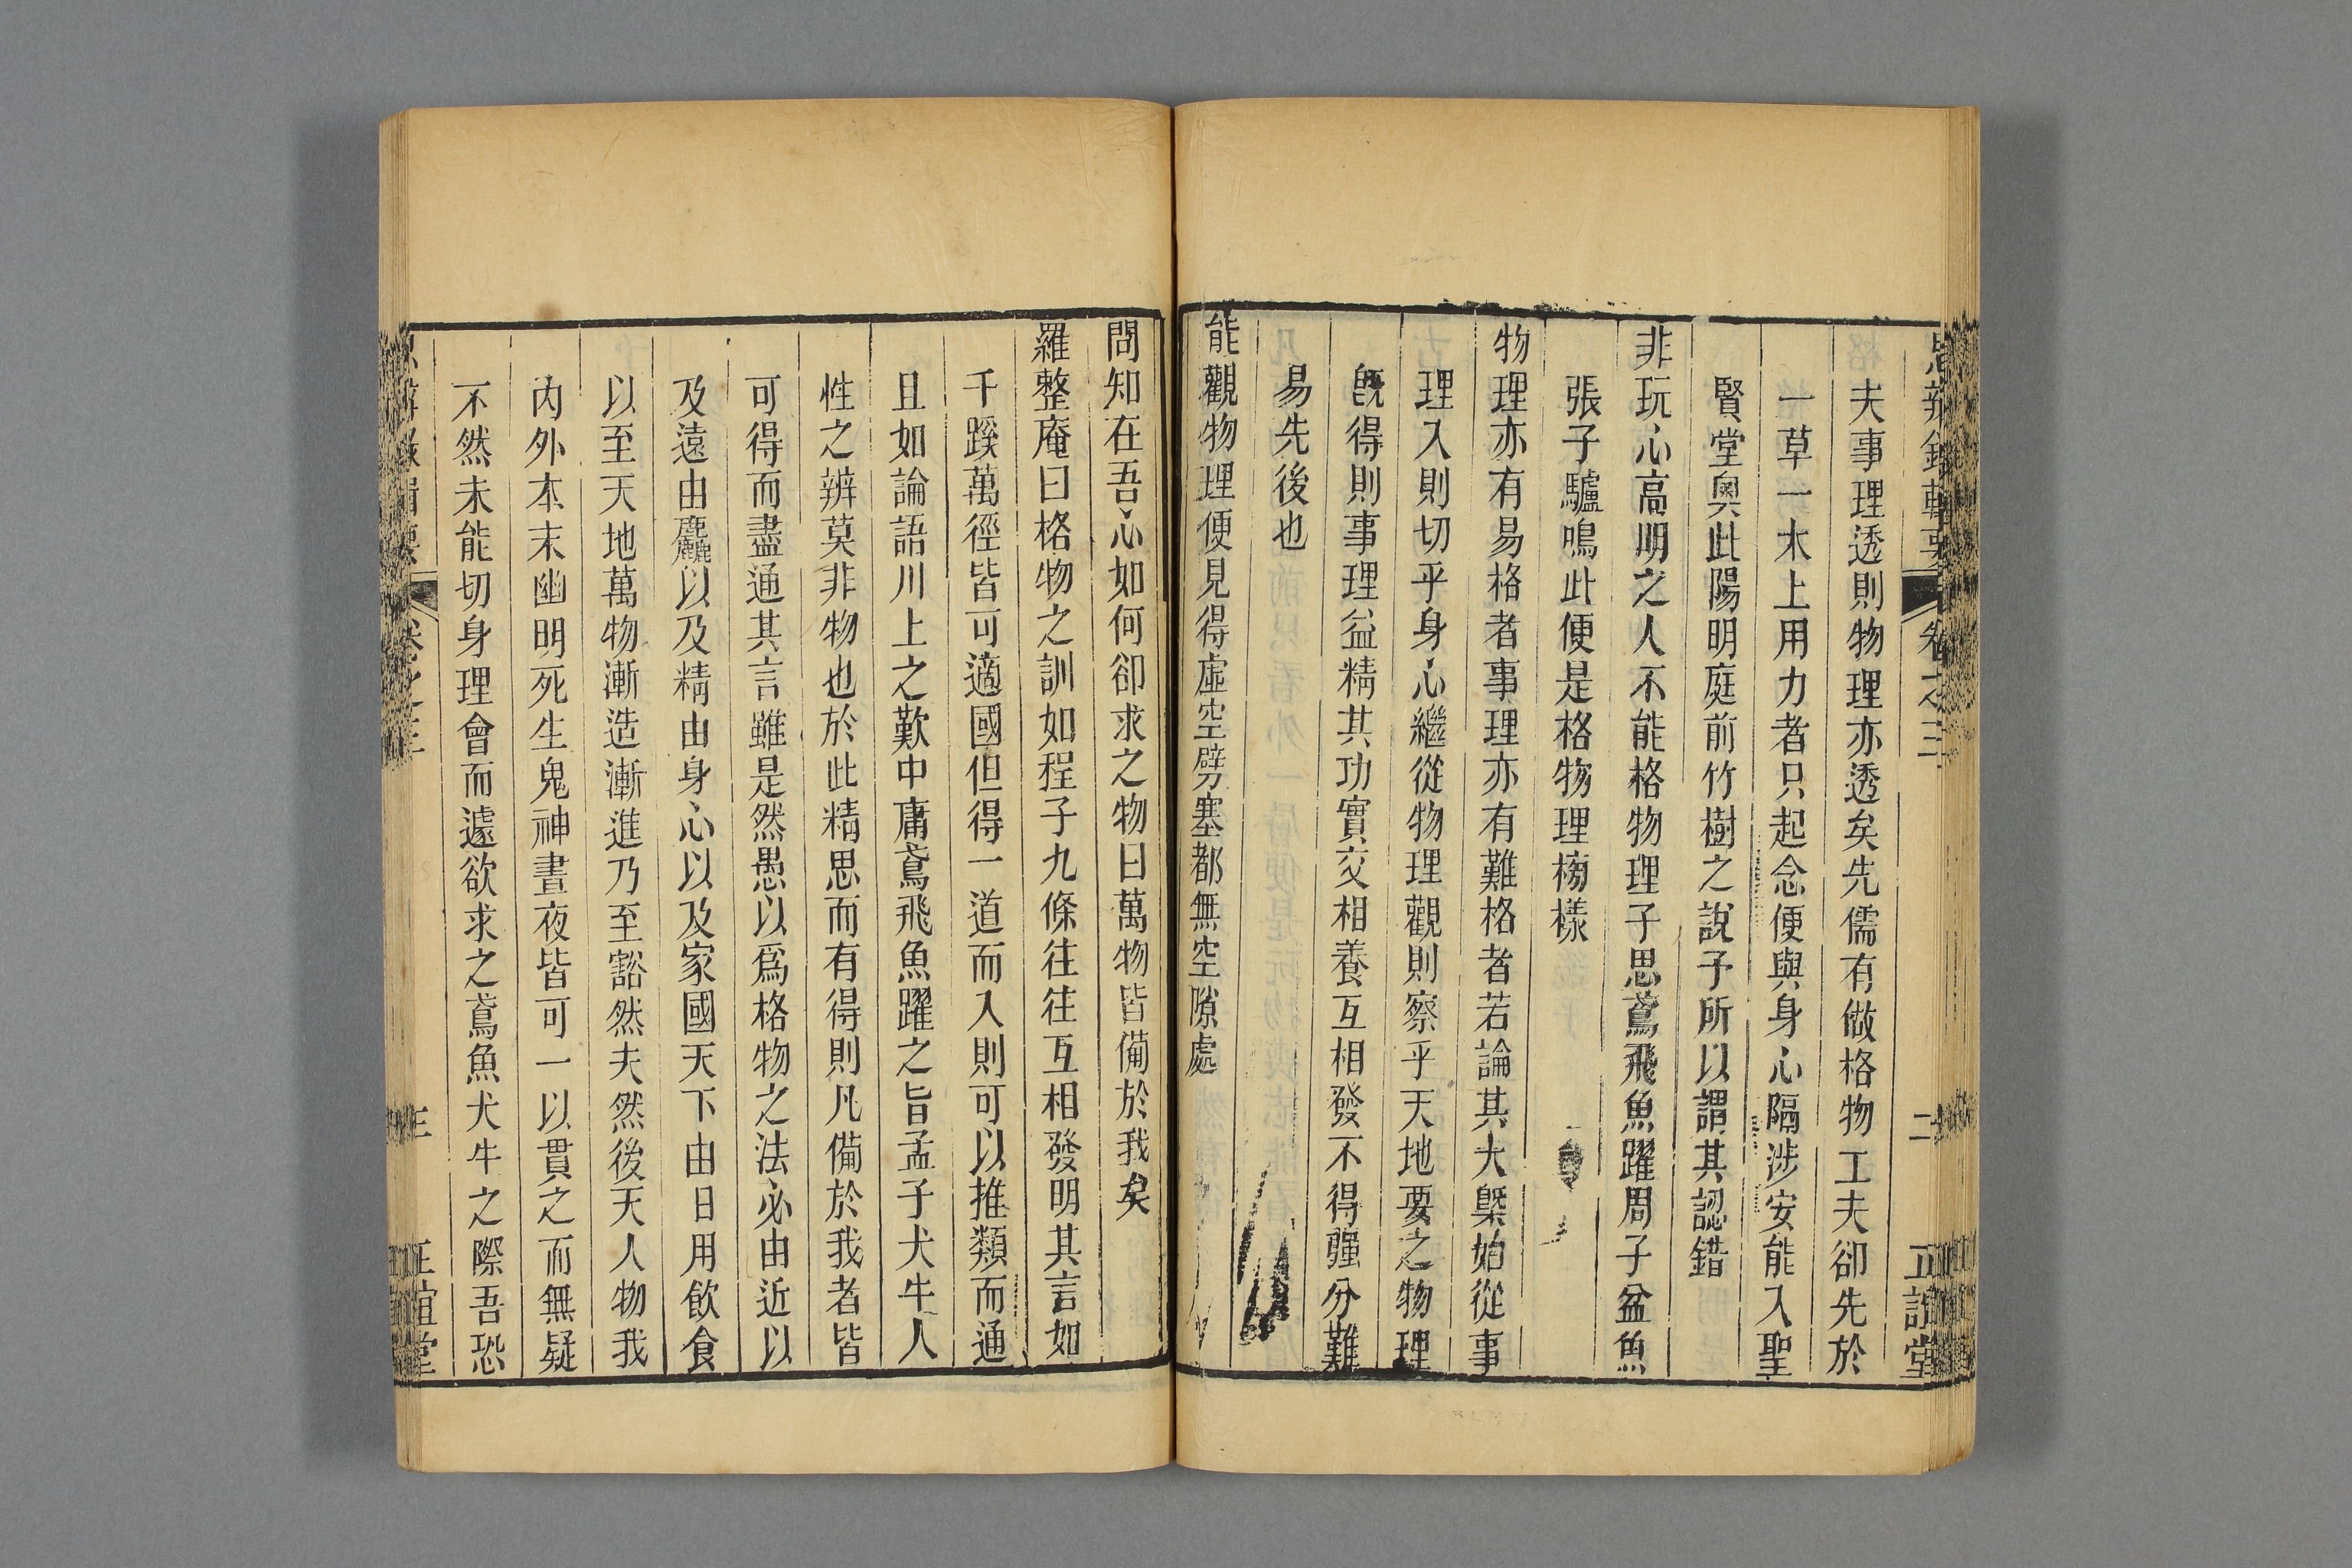 思辨錄輯要 卷之三 二 正誼堂
夫事理透則物理亦透矣先儒有做格物工夫卻先於
一草一木上用力者只起念便與身心隔涉安能入聖
賢堂奧此陽明庭前竹樹之說予所以謂其認錯
非玩心高明之人不能格物理子思鳶飛魚躍周子盆魚
張子驢鳴此便是格物理榜樣
物理亦有易格者事理亦有難格者若論其大槩始從事
理入則切乎身心繼從物理觀則察乎天地要之物理
旣得則事理益精其功實交相養互相發不得彊分難
易先後也
能觀物理便見得虛空劈塞都無空隙處
問知在吾心如何卻求之物曰萬物皆備於我矣
羅整庵曰格物之訓如程子九條往往互相發明其言如
千蹊萬徑皆可適國但得一道而入則可以推類而通
且如論語川上之歎中庸鳶飛魚躍之旨孟子犬牛人
性之辨莫非物也於此精思而有得則凡備於我者皆
可得而盡通其言雖是然愚以爲格物之法必由近以
及遠由麤以及精由身心以及家國天下由日用飲食
以至天地萬物漸造漸進乃至豁然夫然後天人物我
內外本末幽明死生鬼神晝夜皆可一以貫之而無疑
不然未能切身理會而遽欲求之鳶魚犬牛之際吾恐
思辨錄輯要 卷之三 三 正誼堂